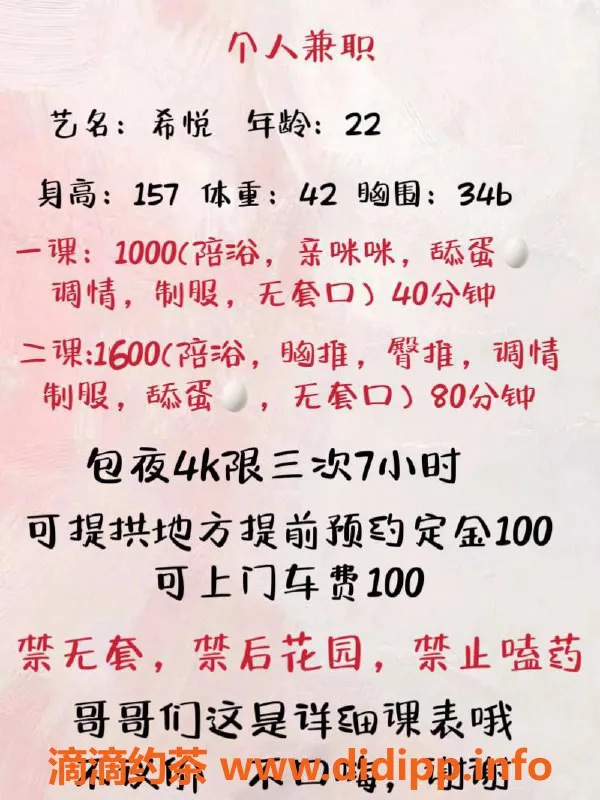 个人兼职
艺名：希悦 年龄：22
身高：157 体重：42 胸围：34b
一课：1000(陪浴，亲咪咪，舔蛋🥚
调情，制服，无套口）40分钟
二课:1600(陪浴，胸推，臀推，调情
制服，舔蛋🥚，无套口）80分钟
包夜4k限三次7小时
可提拱地方提前预约定金100
可上门车费100
禁无套，禁后花园，禁止嗑药
哥哥们这是详细课表哦
不口嗨，谢谢
滴滴约茶 www.didipp.info